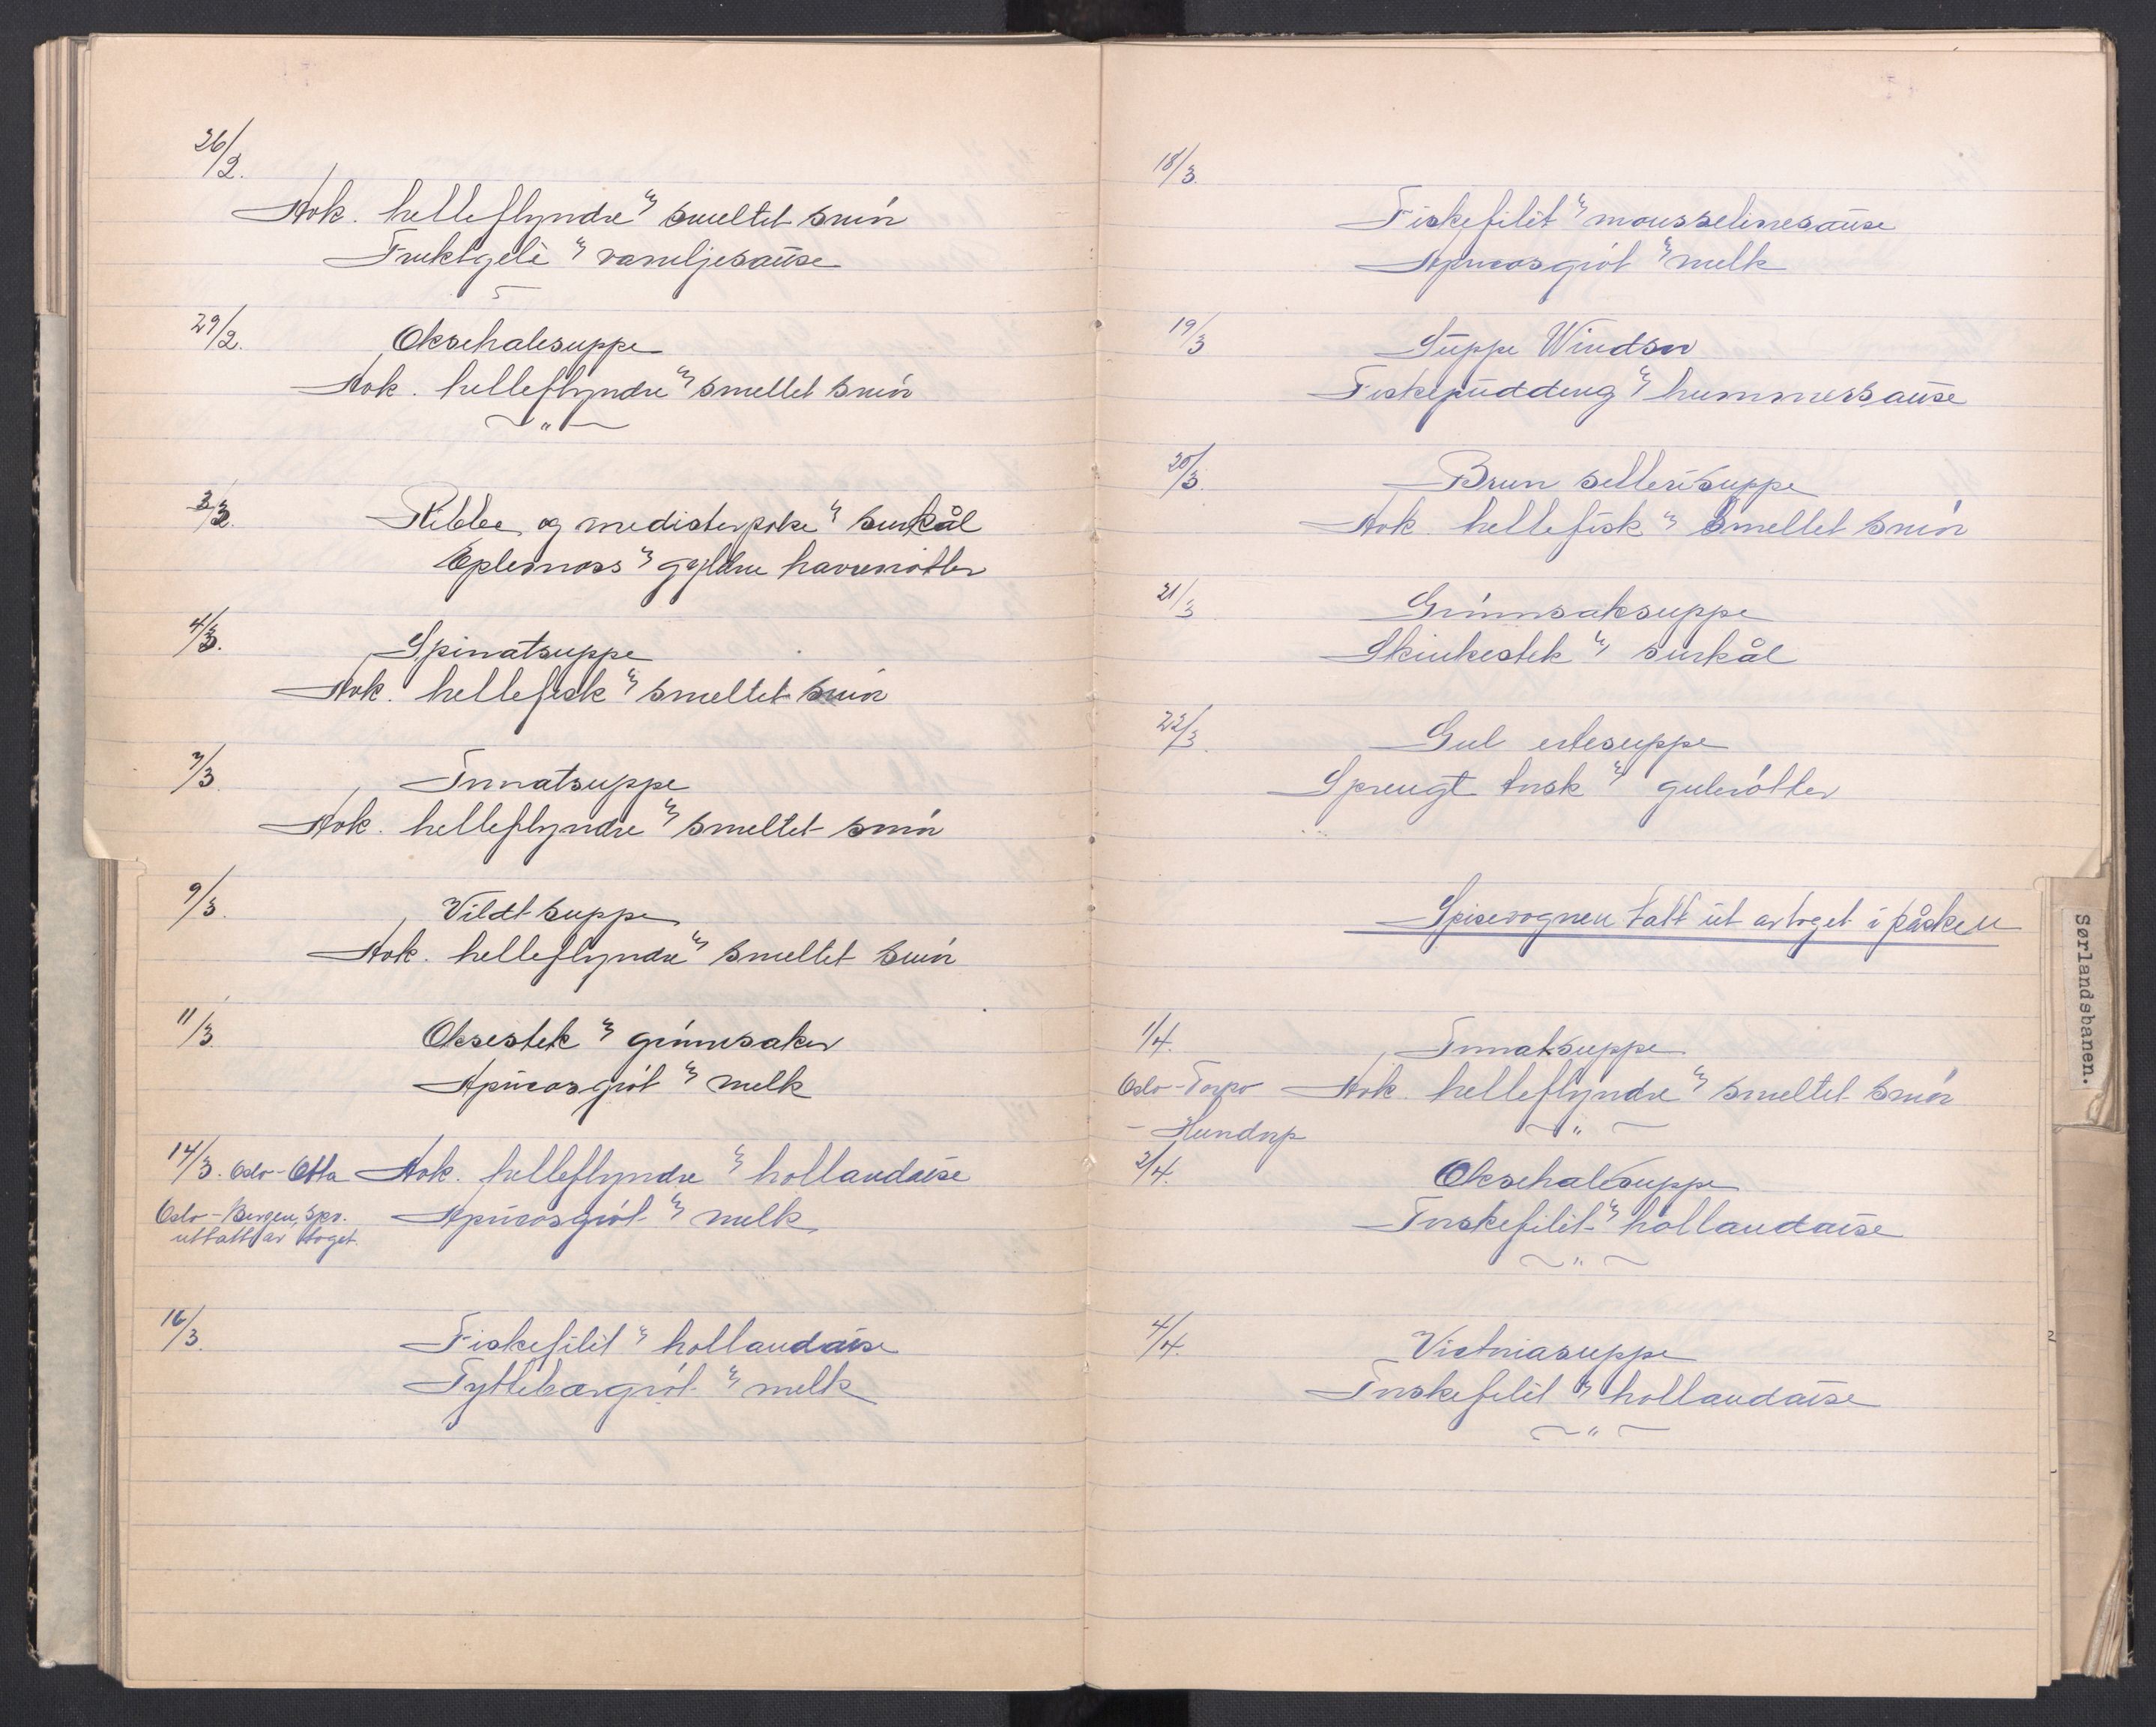 26/2.
Kok. helleflyndre m/ smeltet smör
Fruktgelè m/ vaniljesause
29/2.
Oksehalesuppe
Kok. helleflyndre m/ smeltet smör
~ " ~
3/3.
Ribbe og medisterpølse m/ surkål
Eplemoss m/ gyldne havrenötter
4/3.
Spinatsuppe
Kok. hellefisk m/ smeltet smör
7/3
Tomatsuppe
Kok. helleflyndre m/ smeltet smör
9/3.
Vildtsuppe
Kok. helleflyndre m/ smeltet smör
11/3.
Oksestek m/ grönnsaker
Apricosgröt m/ melk
14/3. Oslo-Otta Kok. helleflyndre m/ hollandaise
Oslo-Bergen, Spv. Apricosgröt m/ melk
uttatt av toget.
16/3.
Fiskefilèt m/ hollandaise
Tyttebærgröt m/ melk
18/3.
Fiskefilèt m/ mousselinesause
Apricosgröt m/ melk
19/3
Suppe Windsor
Fiskepudding m/ hummersause
20/3.
Brun sellerisuppe
Kok. hellefisk m/ smeltet smör
21/3
Grönnsaksuppe
Skinkestek m/ surkål
22/3.
Gul ertesuppe
Sprengt torsk m/ gulerötter
Spisevognen tatt ut av toget i påsken
Sørlandsbanen.
1/4.
Tomatsuppe
Oslo-Torpo Kok. helleflyndre m/ smeltet smör
- Hundorp ~ " ~
2/4.
Oksehalesuppe
Torskefilèt m/ hollandaise
~ " ~
4/4.
Victoriasuppe
Torskefilèt m/ hollandaise
~ " ~